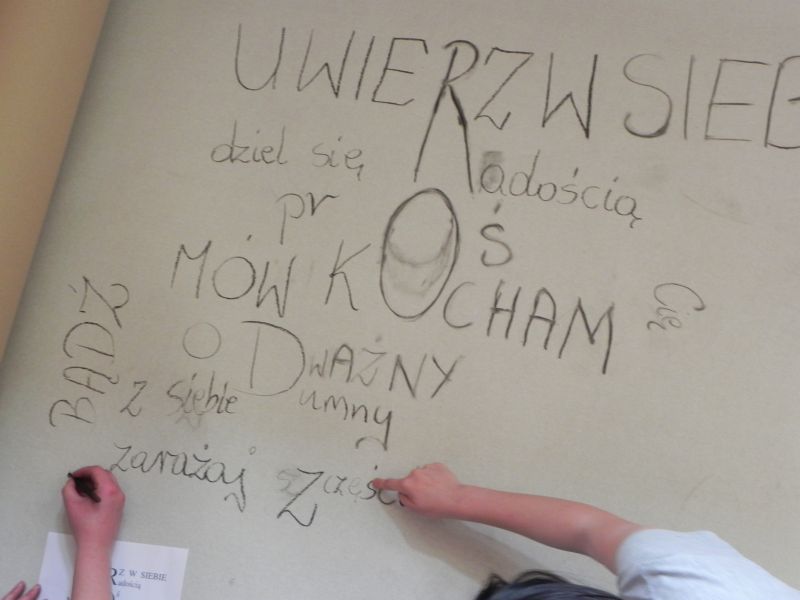 UWIERZ W SIEB
dziel się Radością
prOś
MÓW KOCHAM Cię
BĄDŹ
ODWAŻNY
z siebie Dumny
zarażaj SZczęśc
RZ W SIEBIE
Radością